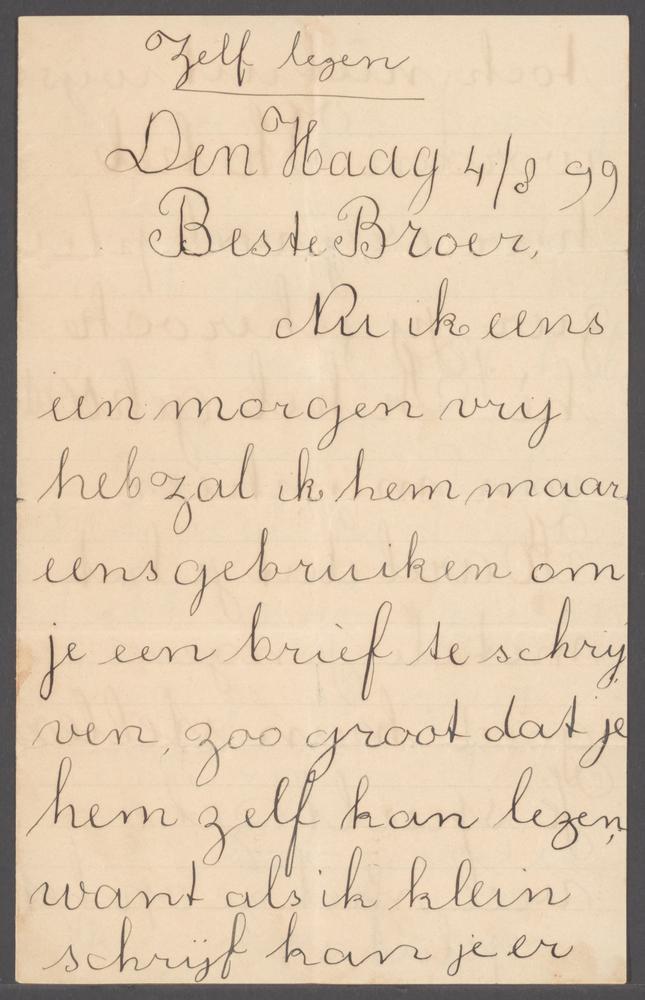 Zelf lezen
Den Haag 4/8 99
Beste Broer,
Nu ik eens
een morgen vry
heb zal ik hem maar
eens gebruiken om
je een brief te schrij
ven, zoo groot dat je
hem zelf kan lezen,
want als ik klein
schrijf kan je er